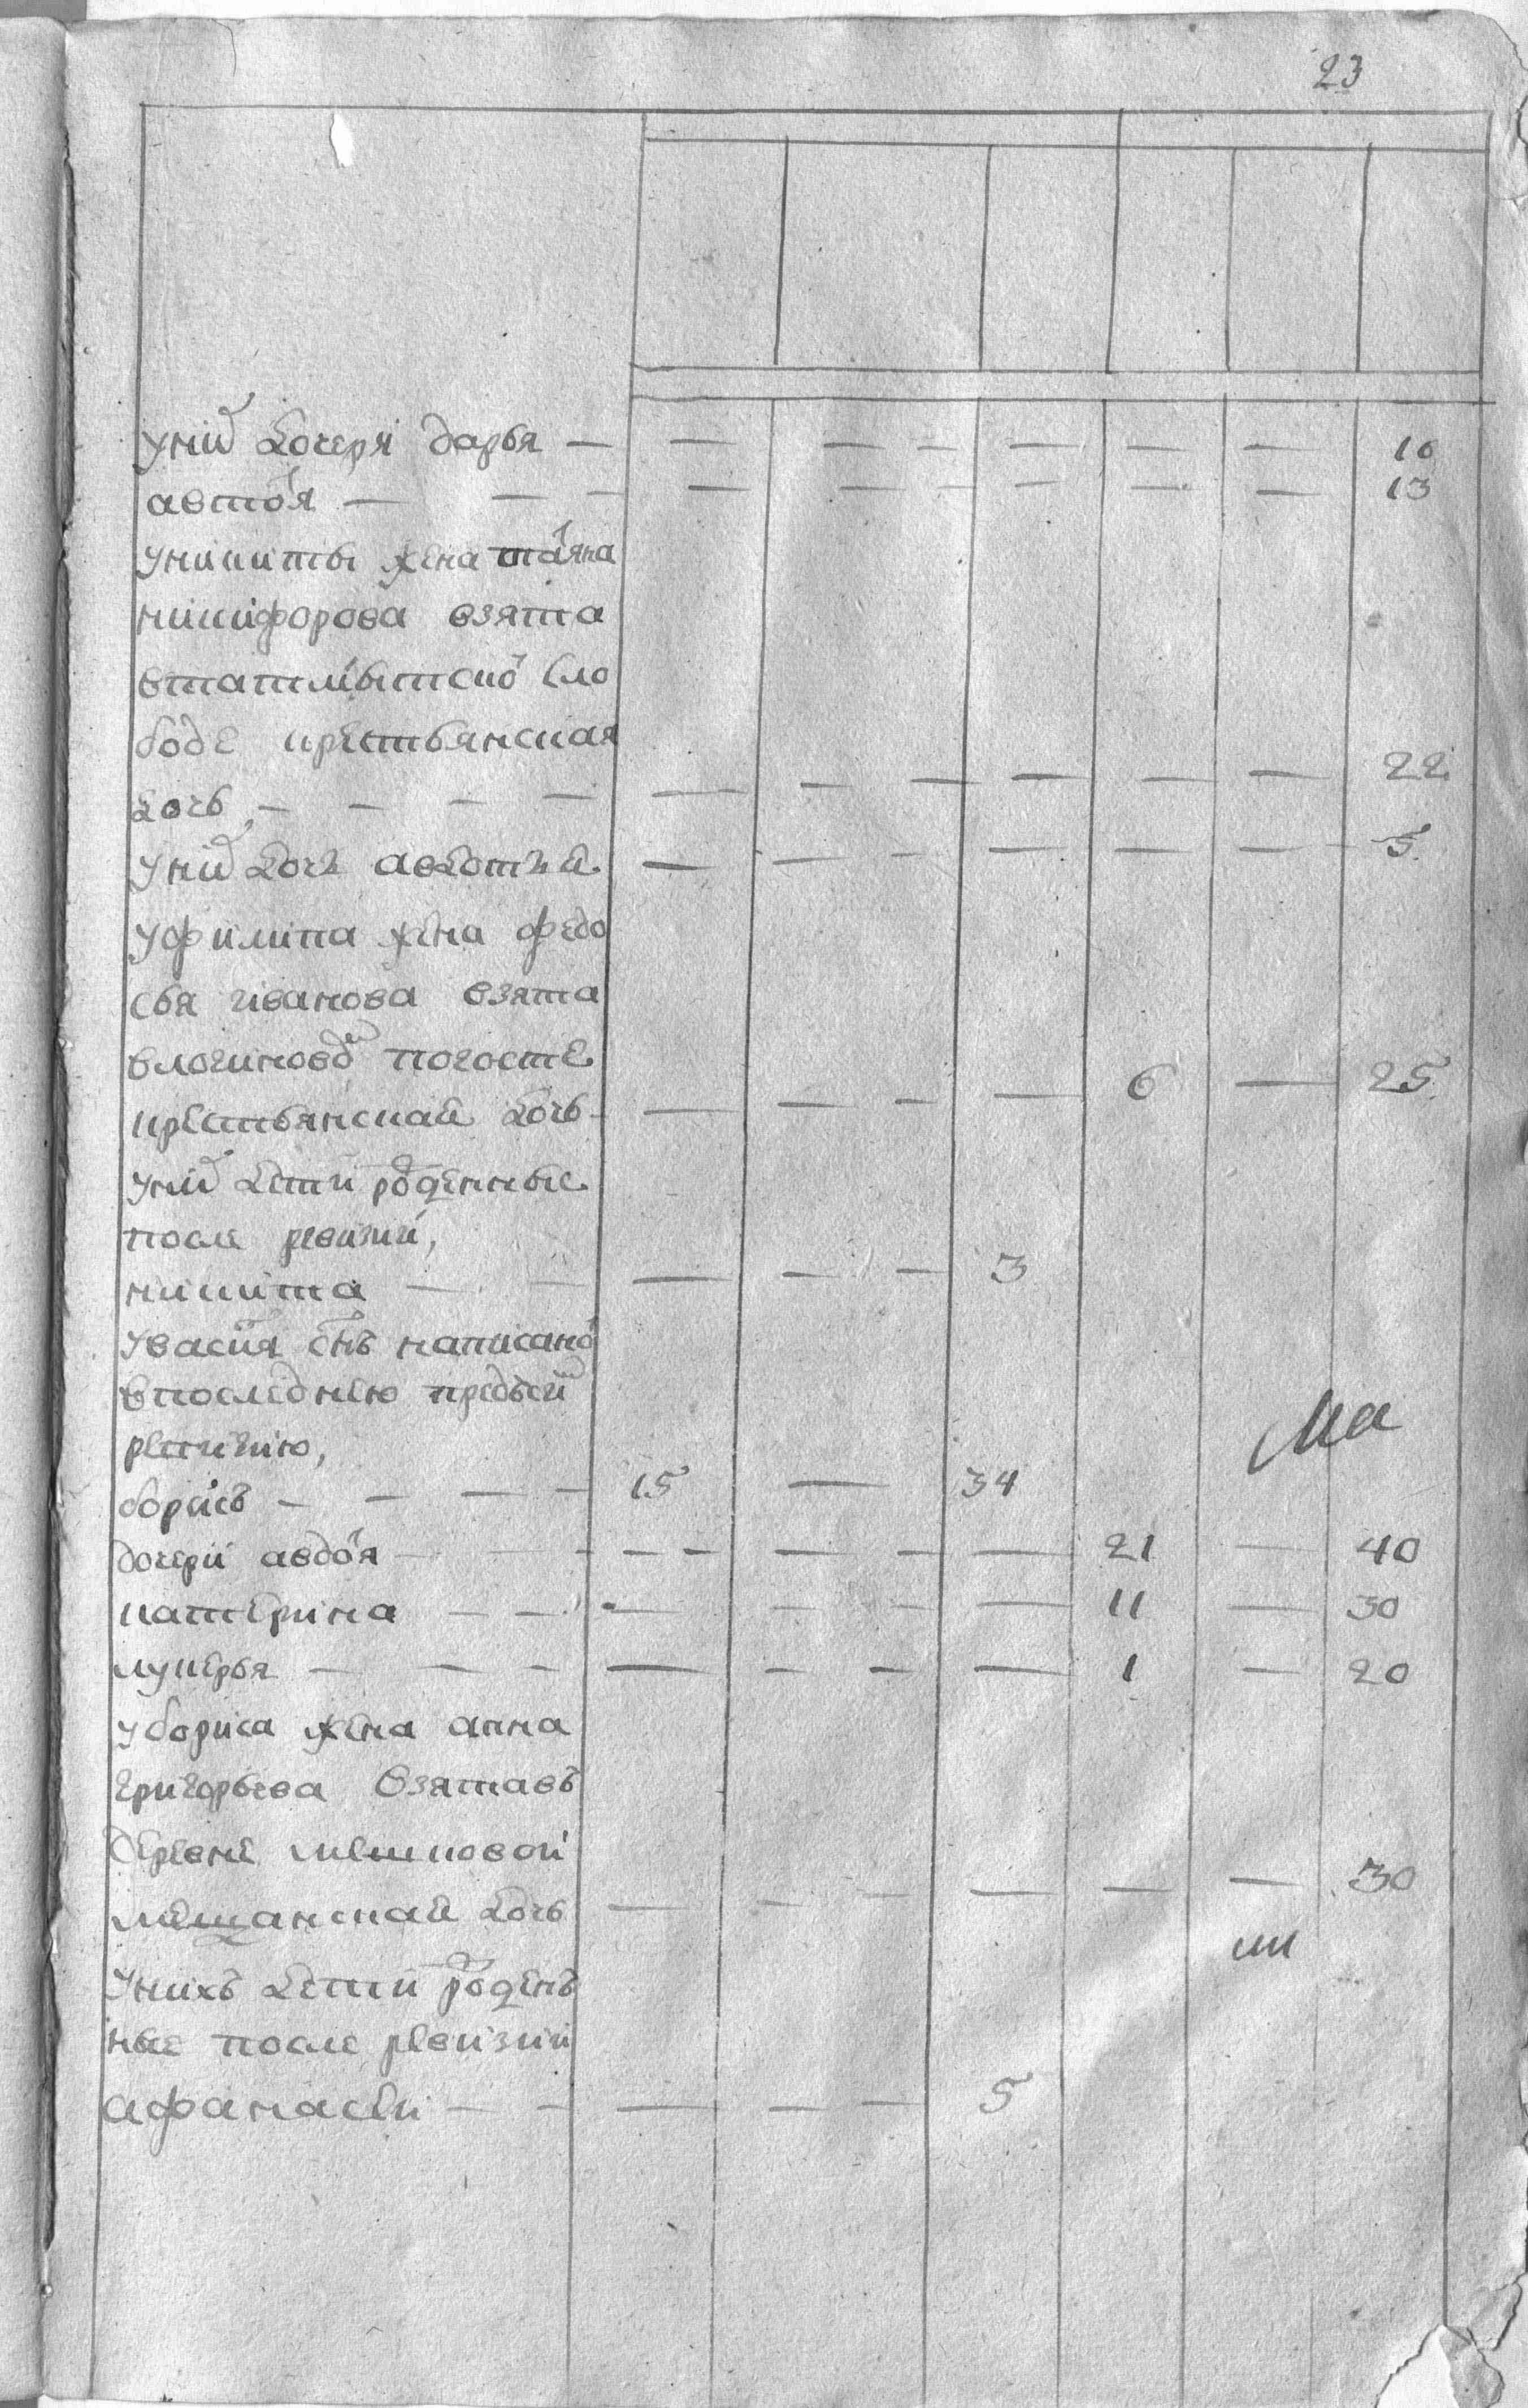 23
у них дочери дарья — — — — — — — 16
автоя — — — — — — — — — 13
уникиты жена татьяна
никифорова взята
в
боде крестьянская
дочь — — — — — — — — — — 22
у них дочь авдотья — — — — — — 5
уфилипа жена федо
сья иванова взята
влогиновом погосте
крестьянская дочь — — — — 6 — 25
у них дети рожденные
после ревизии,
никита — — — — — 3
увасилья сынъ написаной
впоследнею предъсим
ревизию,
борисъ — — — — 15 — 34
дочери авдотья — — — — — — — — 21 — 40
катерина — — — — — — 11 — 30
лукерья — — — — — — — 1 — 20
убориса жена анна
григорьева взятавъ
деревне
мещанская дочь — — — — — — 30
унихъ дети рожденъ
ные после ревизии
афанасеи — — — — — 5